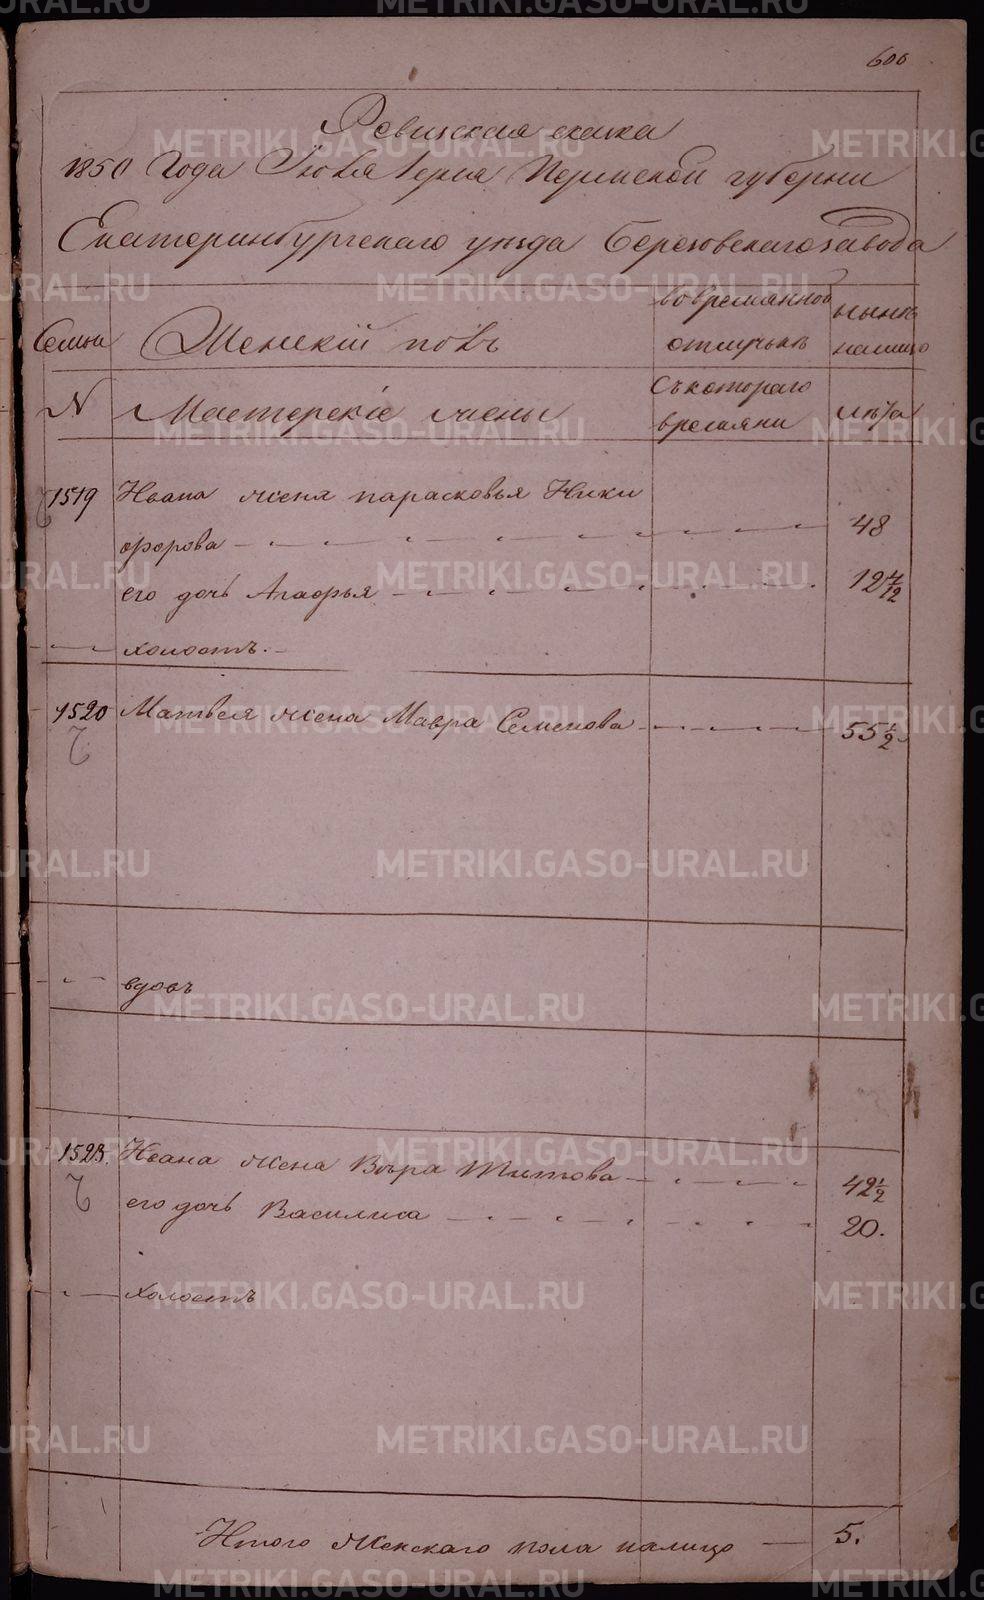 600
Ревизская сказка
1850 Года Июля дня Пермской губернии
Екатеринбургскаго уезда Березовскаго завода
Семьи Женскiй полъ во временной отлучкѣ нынѣ налицо
N Мастерскiе жены Съ котораго времяни лѣта
1519 Ивана жена парасковья Ники
форова 48
его дочь Агафья 12 7/12
холостъ.
1520 Матвея жена Мавра Семенова 55 1/2
вдовъ
1523. Ивана жена Вѣра Титова 42 1/2
его дочь Василиса 20.
холостъ
Итого женскаго пола налицо 5.
METRIKI.GASO-URAL.RU